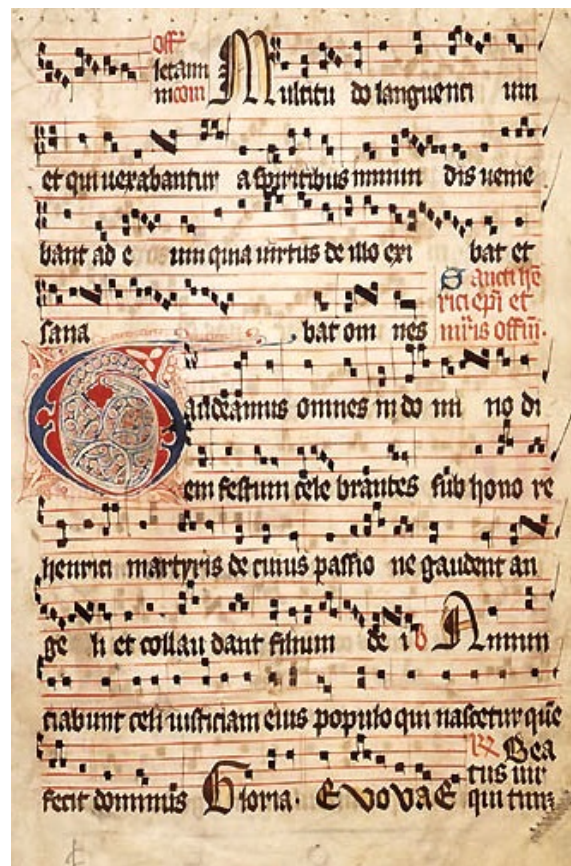 Off
letamini com Multitudo languenti um
et qui uexabantur a spiritibus inmun dis uenie
bant ad e um quia uirtus de illo exi bat et
sana bat om nes Sancti hē
rici ep̄i et
mr̄is offm̄.
Gaudeamus omnes in do mi no di
em festum cele brantes sub hono re
henrici martyris de cuius passio ne gaudent an
ge li et collau dant filium de i V Annun
ciabunt celi iusticiam eius populo qui nascetur quē
fecit dominus Gloria. EVOVAE Bea
tus uir
qui tim